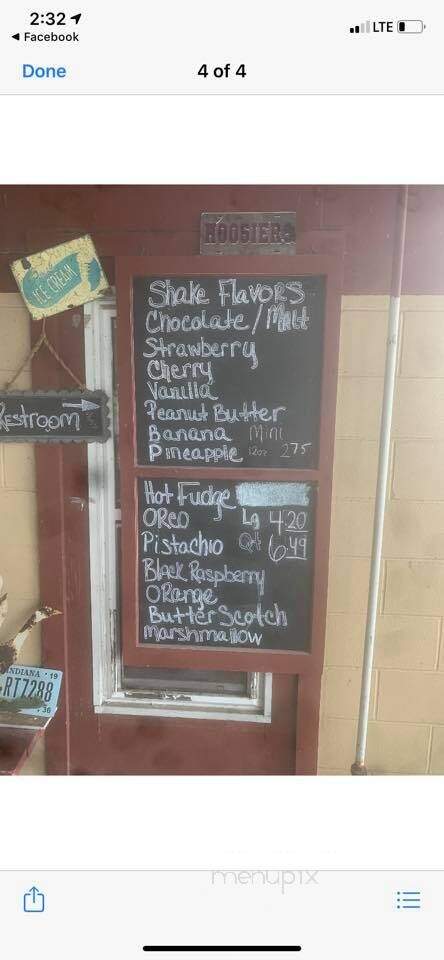 2:32
LTE
Facebook
Done
4 of 4
HOOSIERS
ICE CREAM
Shake Flavors
Chocolate / Malt
Strawberry
Cherry
Vanilla
Peanut Butter
Banana Mini
Pineapple 12oz 2.75
RESTROOM
Hot Fudge
OREO Lg 4.20
Pistachio Qt 6.49
Black Raspberry
ORange
ButterScotch
marshmallow
INDIANA 19
RT7288
36
menupix